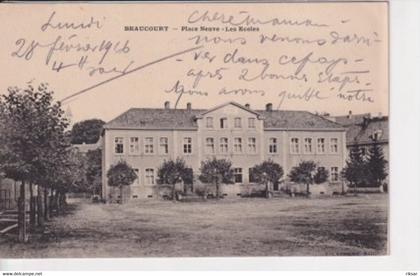 Lundi
28 février 1916
4 h soir
BEAUCOURT. - Place Neuve - Les Ecoles
Chère maman
nous venons d'arri-
ver dans
après 2 bonnes étapes
Nous avons quitté notre